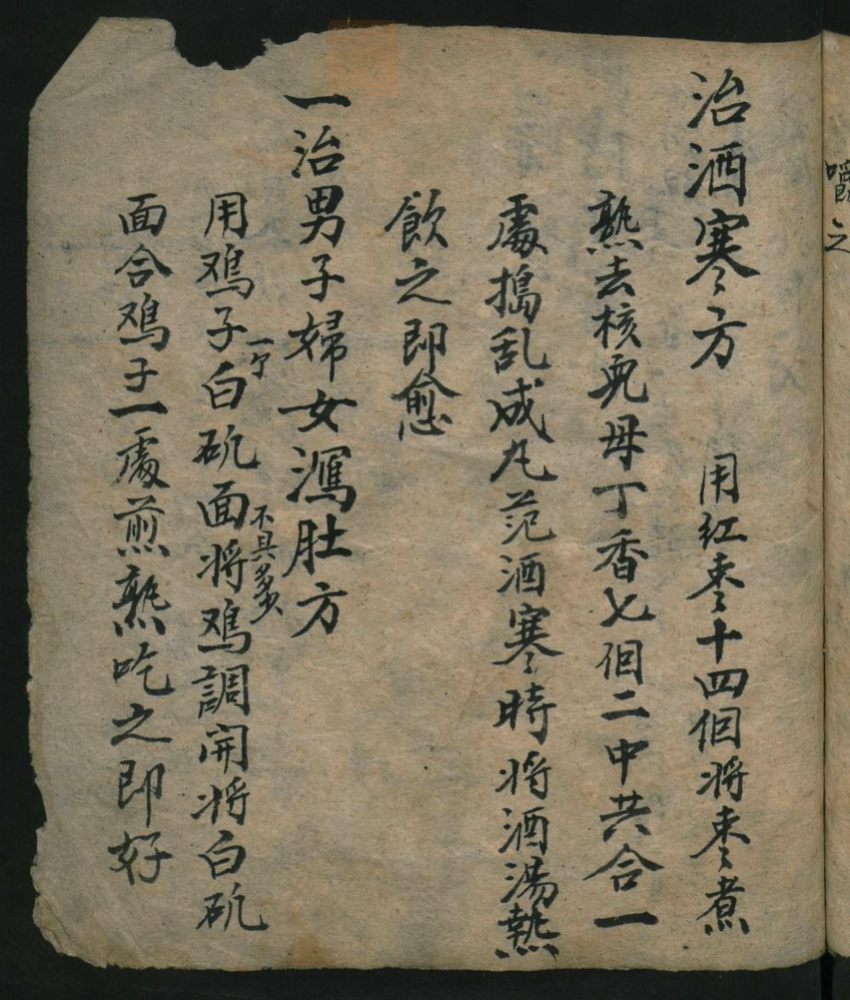 嚼之
治洒寒方 用红枣十四個将枣煮
熟去核兎母丁香七個二中共合一
處搗乱成丸范酒寒時将酒湯熱
飲之即愈
一治男子婦女瀉肚方
用鳮子一个白矾面不具多少将鳮調開将白矾
面合鳮子一處煎熟吃之即好